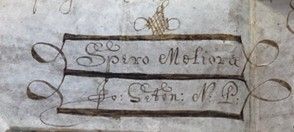 Spero Meliora
Jo: Seton: N: P: